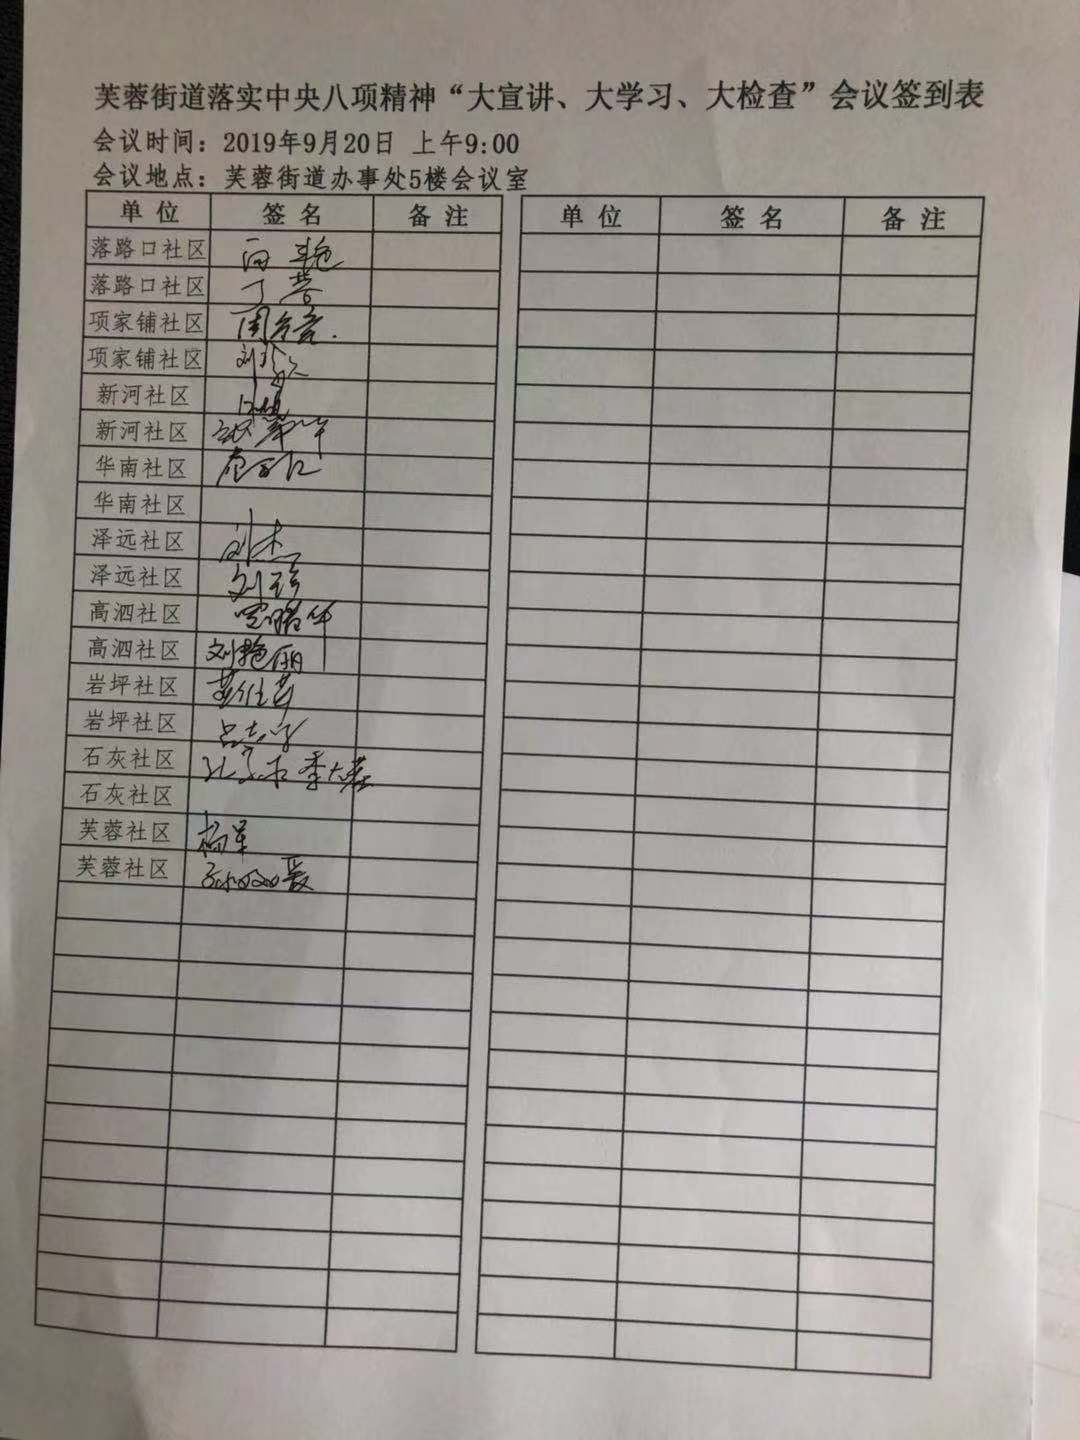 芙蓉街道落实中央八项精神“大宣讲、大学习、大检查”会议签到表
会议时间：2019年9月20日 上午9:00
会议地点：芙蓉街道办事处5楼会议室
单位 签名 备注 单位 签名 备注
落路口社区
落路口社区 丁蓉
项家铺社区
项家铺社区
新河社区
新河社区
华南社区
华南社区
泽远社区 刘杰
泽远社区 刘珍
高泗社区
高泗社区 刘艳丽
岩坪社区
岩坪社区
石灰社区
石灰社区
芙蓉社区 杨军
芙蓉社区